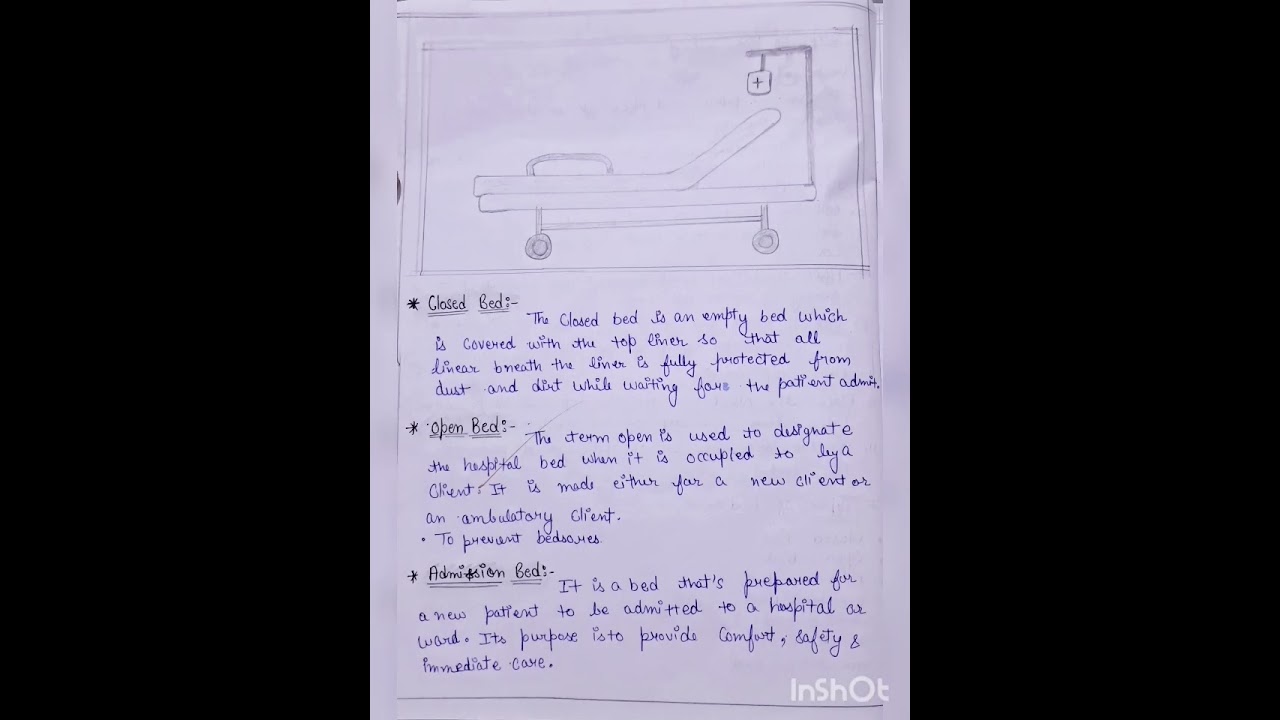 * Closed Bed:-
The Closed bed is an empty bed which
is covered with the top liner so that all
linear bneath the liner is fully protected from
dust and dirt while waiting for the patient admit.
* Open Bed:-
The term open is used to designate
the hospital bed when it is occupied to by a
Client. It is made either for a new client or
an ambulatory client.
• To prevent bedsores
* Admission Bed:-
It is a bed that's prepared for
a new patient to be admitted to a hospital or
ward. Its purpose is to provide comfort, safety &
immediate care.
InShOt